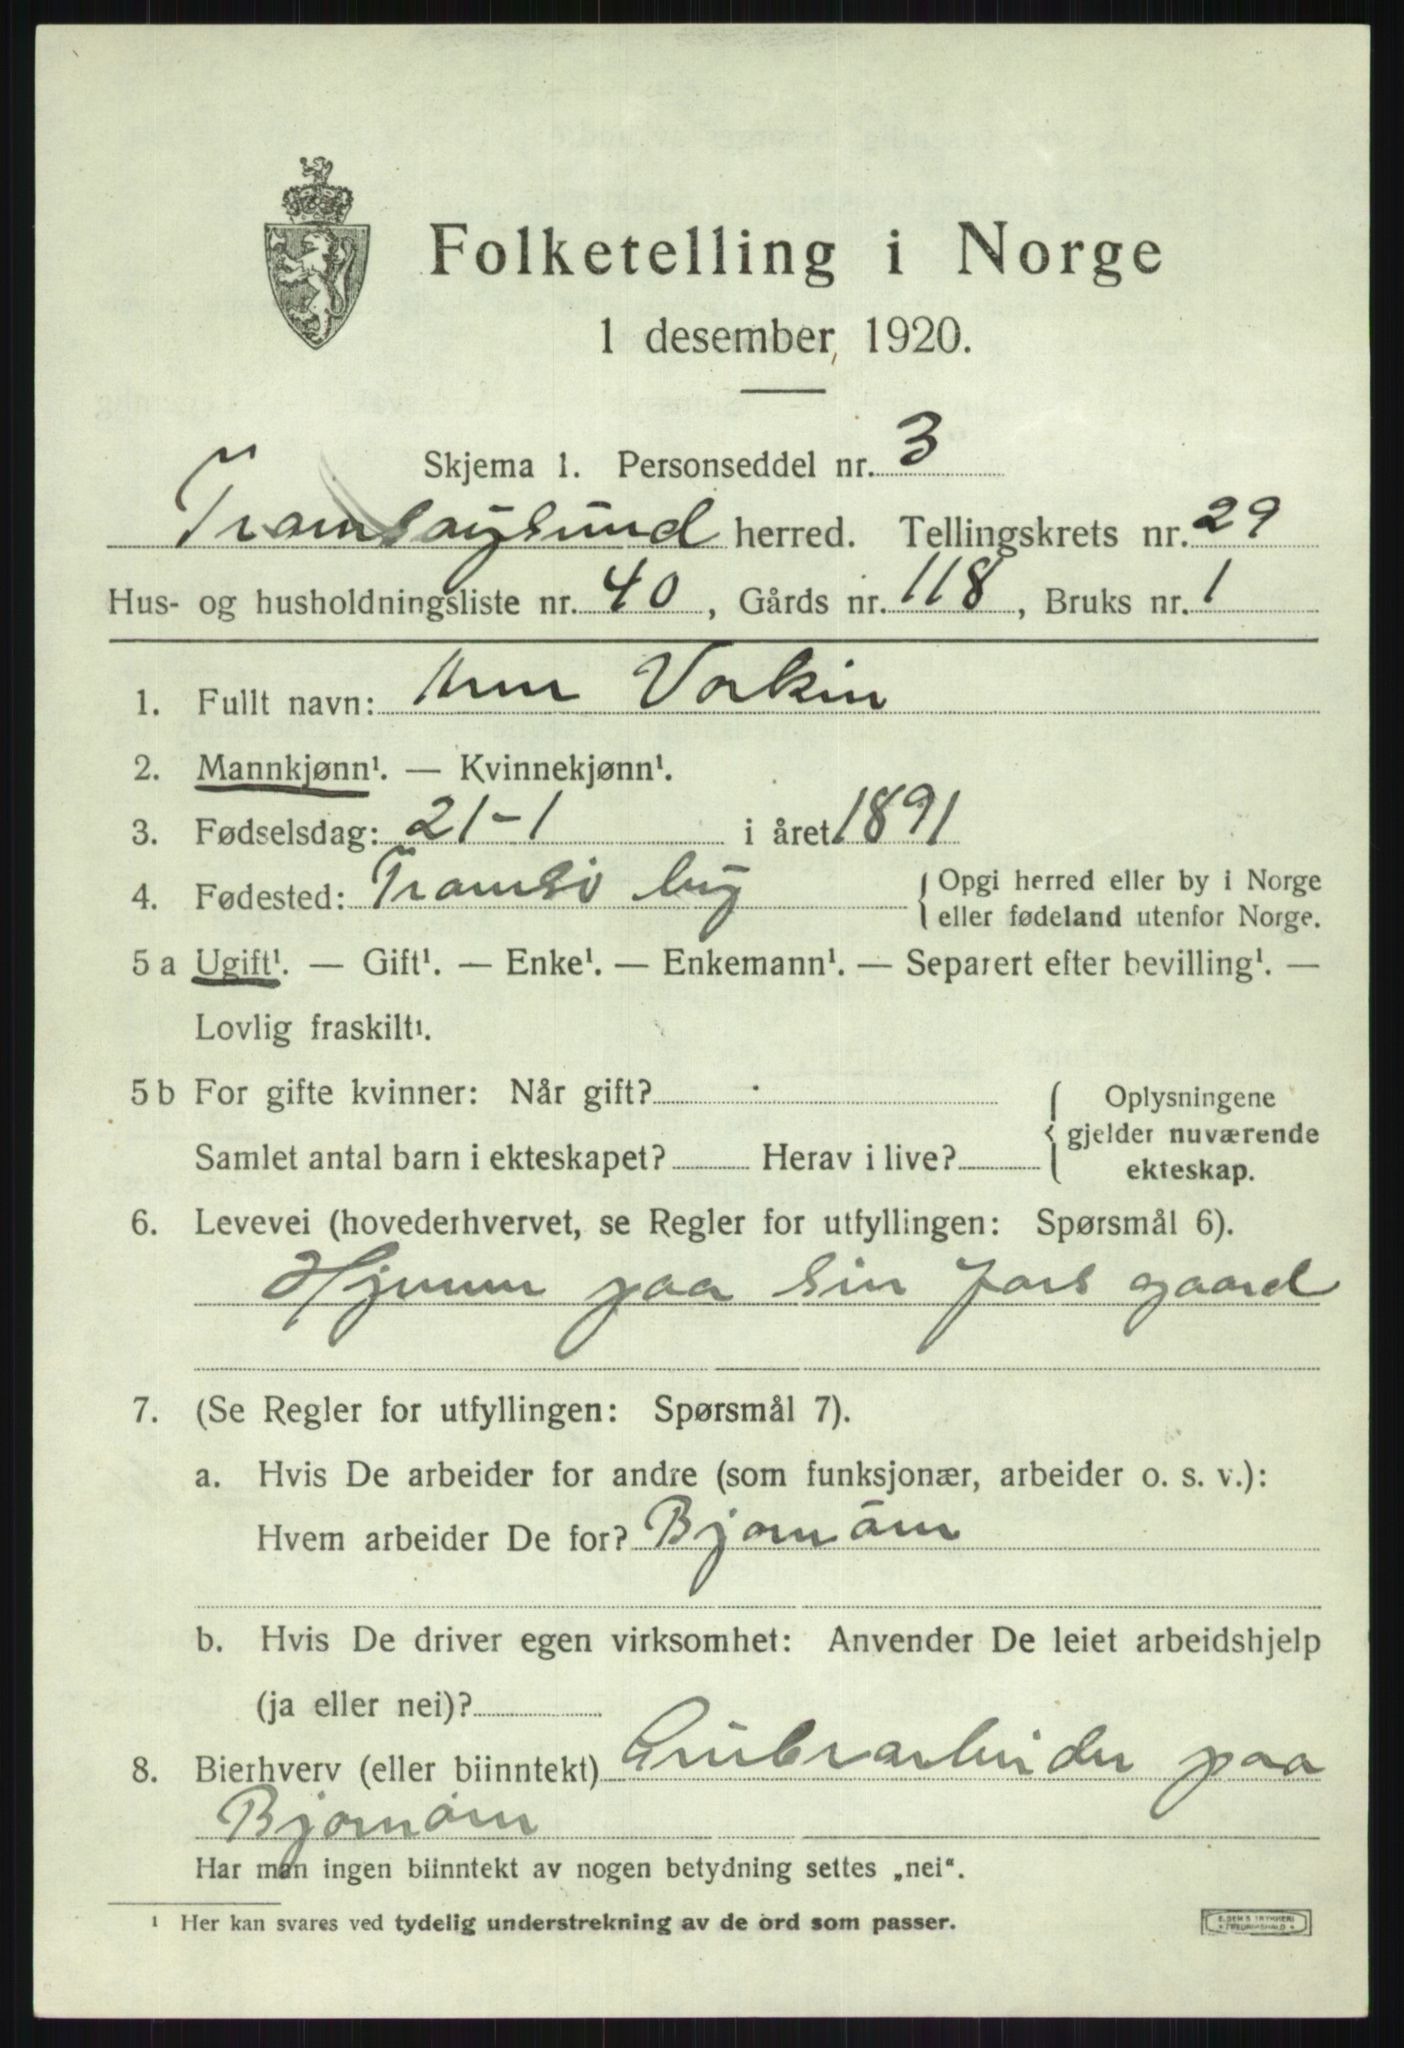 Folketelling i Norge
1 desember 1920.
Skjema 1. Personseddel nr. 3
Tromsøysund herred. Tellingskrets nr. 29
Hus- og husholdningsliste nr. 40, Gårds nr. 118, Bruks nr. 1
1. Fullt navn:
2. Mannkjønn¹. — Kvinnekjønn¹.
3. Fødselsdag: 21-1 i året 1891
4. Fødested: Tromsø by { Opgi herred eller by i Norge
eller fødeland utenfor Norge.
5 a Ugift¹. — Gift¹. — Enke¹. — Enkemann¹. — Separert efter bevilling¹. —
Lovlig fraskilt¹.
5 b For gifte kvinner: Når gift?
Samlet antal barn i ekteskapet? Herav i live?
Oplysningene
gjelder nuværende
ekteskap.
6. Levevei (hovederhvervet, se Regler for utfyllingen: Spørsmål 6).
Hjemme paa sin fars gaard
7. (Se Regler for utfyllingen: Spørsmål 7).
a. Hvis De arbeider for andre (som funksjonær, arbeider o. s. v.):
Hvem arbeider De for?
b. Hvis De driver egen virksomhet: Anvender De leiet arbeidshjelp
(ja eller nei)?
8. Bierhverv (eller biinntekt) Grubearbeider paa
Har man ingen biinntekt av nogen betydning settes „nei“.
¹ Her kan svares ved tydelig understrekning av de ord som passer.